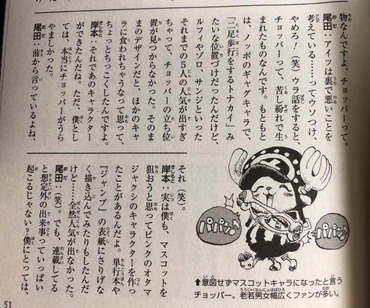 物なんですよ、チョッパーって。
尾田：アイツは裏で悪いことを
考えている……ってウソつけ、
やめろ！（笑）ウラ話をすると、
チョッパーって、苦し紛れで生
まれたものなんです。もともと
は、ノッポのギャグキャラで、
「二足歩行をするトナカイ」み
たいな位置づけだったんだけど、
ルフィやゾロ、サンジといった
それまでの5人の人気が出すぎ
ちゃって、チョッパーの立ち位
置が見つからなかった。そのま
まのデザインだと、ほかのキャ
ラに食われちゃうなって思って、
ちょっとちっこくしたんですよ。
岸本：それであのキャラクター
ができたんだね。ただ、僕とし
ては、本当にチョッパーがうら
やましかった。
尾田：前から言っているよね、
それ（笑）。
岸本：実は僕も、マスコットを
狙おうと思ってピンクのオタマ
ジャクシのキャラクターを作っ
たことがあるんだよ。単行本や
『ジャンプ』の表紙にさりげな
く描き込んでみたりもしたんだ
けど……全然人気が出なかった。
尾田：（笑）。でも、連載してる
と想定外の出来事っていっぱい
起こるじゃない？僕にとっては、
⬆意図せずマスコットキャラになったと言う
チョッパー。老若男女幅広くファンが多い。
51